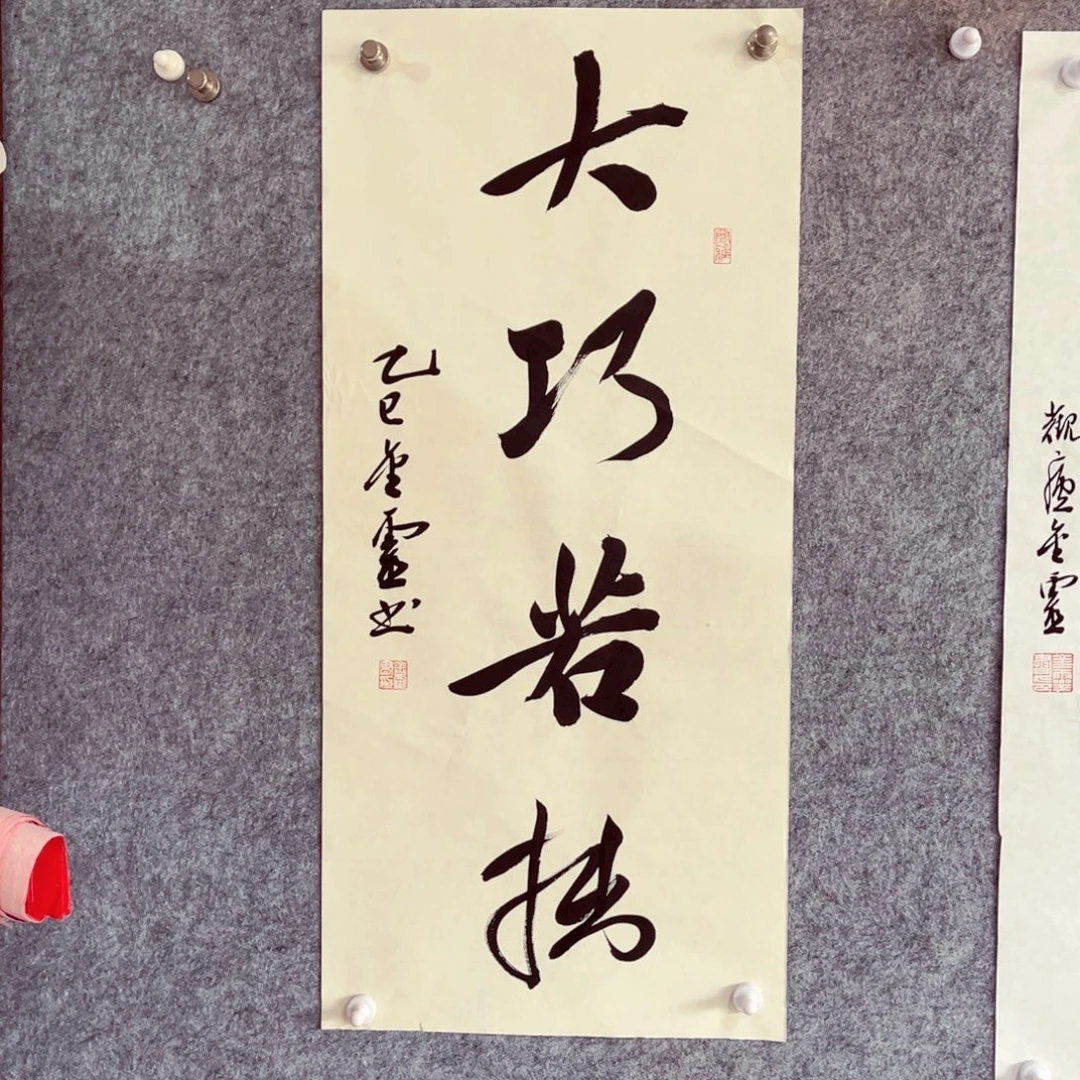 大巧若拙
乙巳金靈书
觀瘞金靈